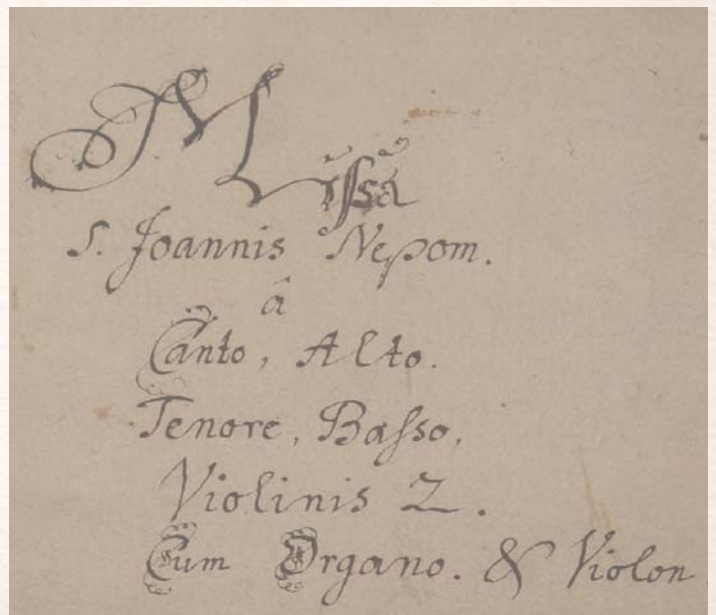 Missa
S. Joannis Nepom.
â
Canto, Alto.
Tenore, Basso,
Violinis 2.
Cum Organo. & Violon